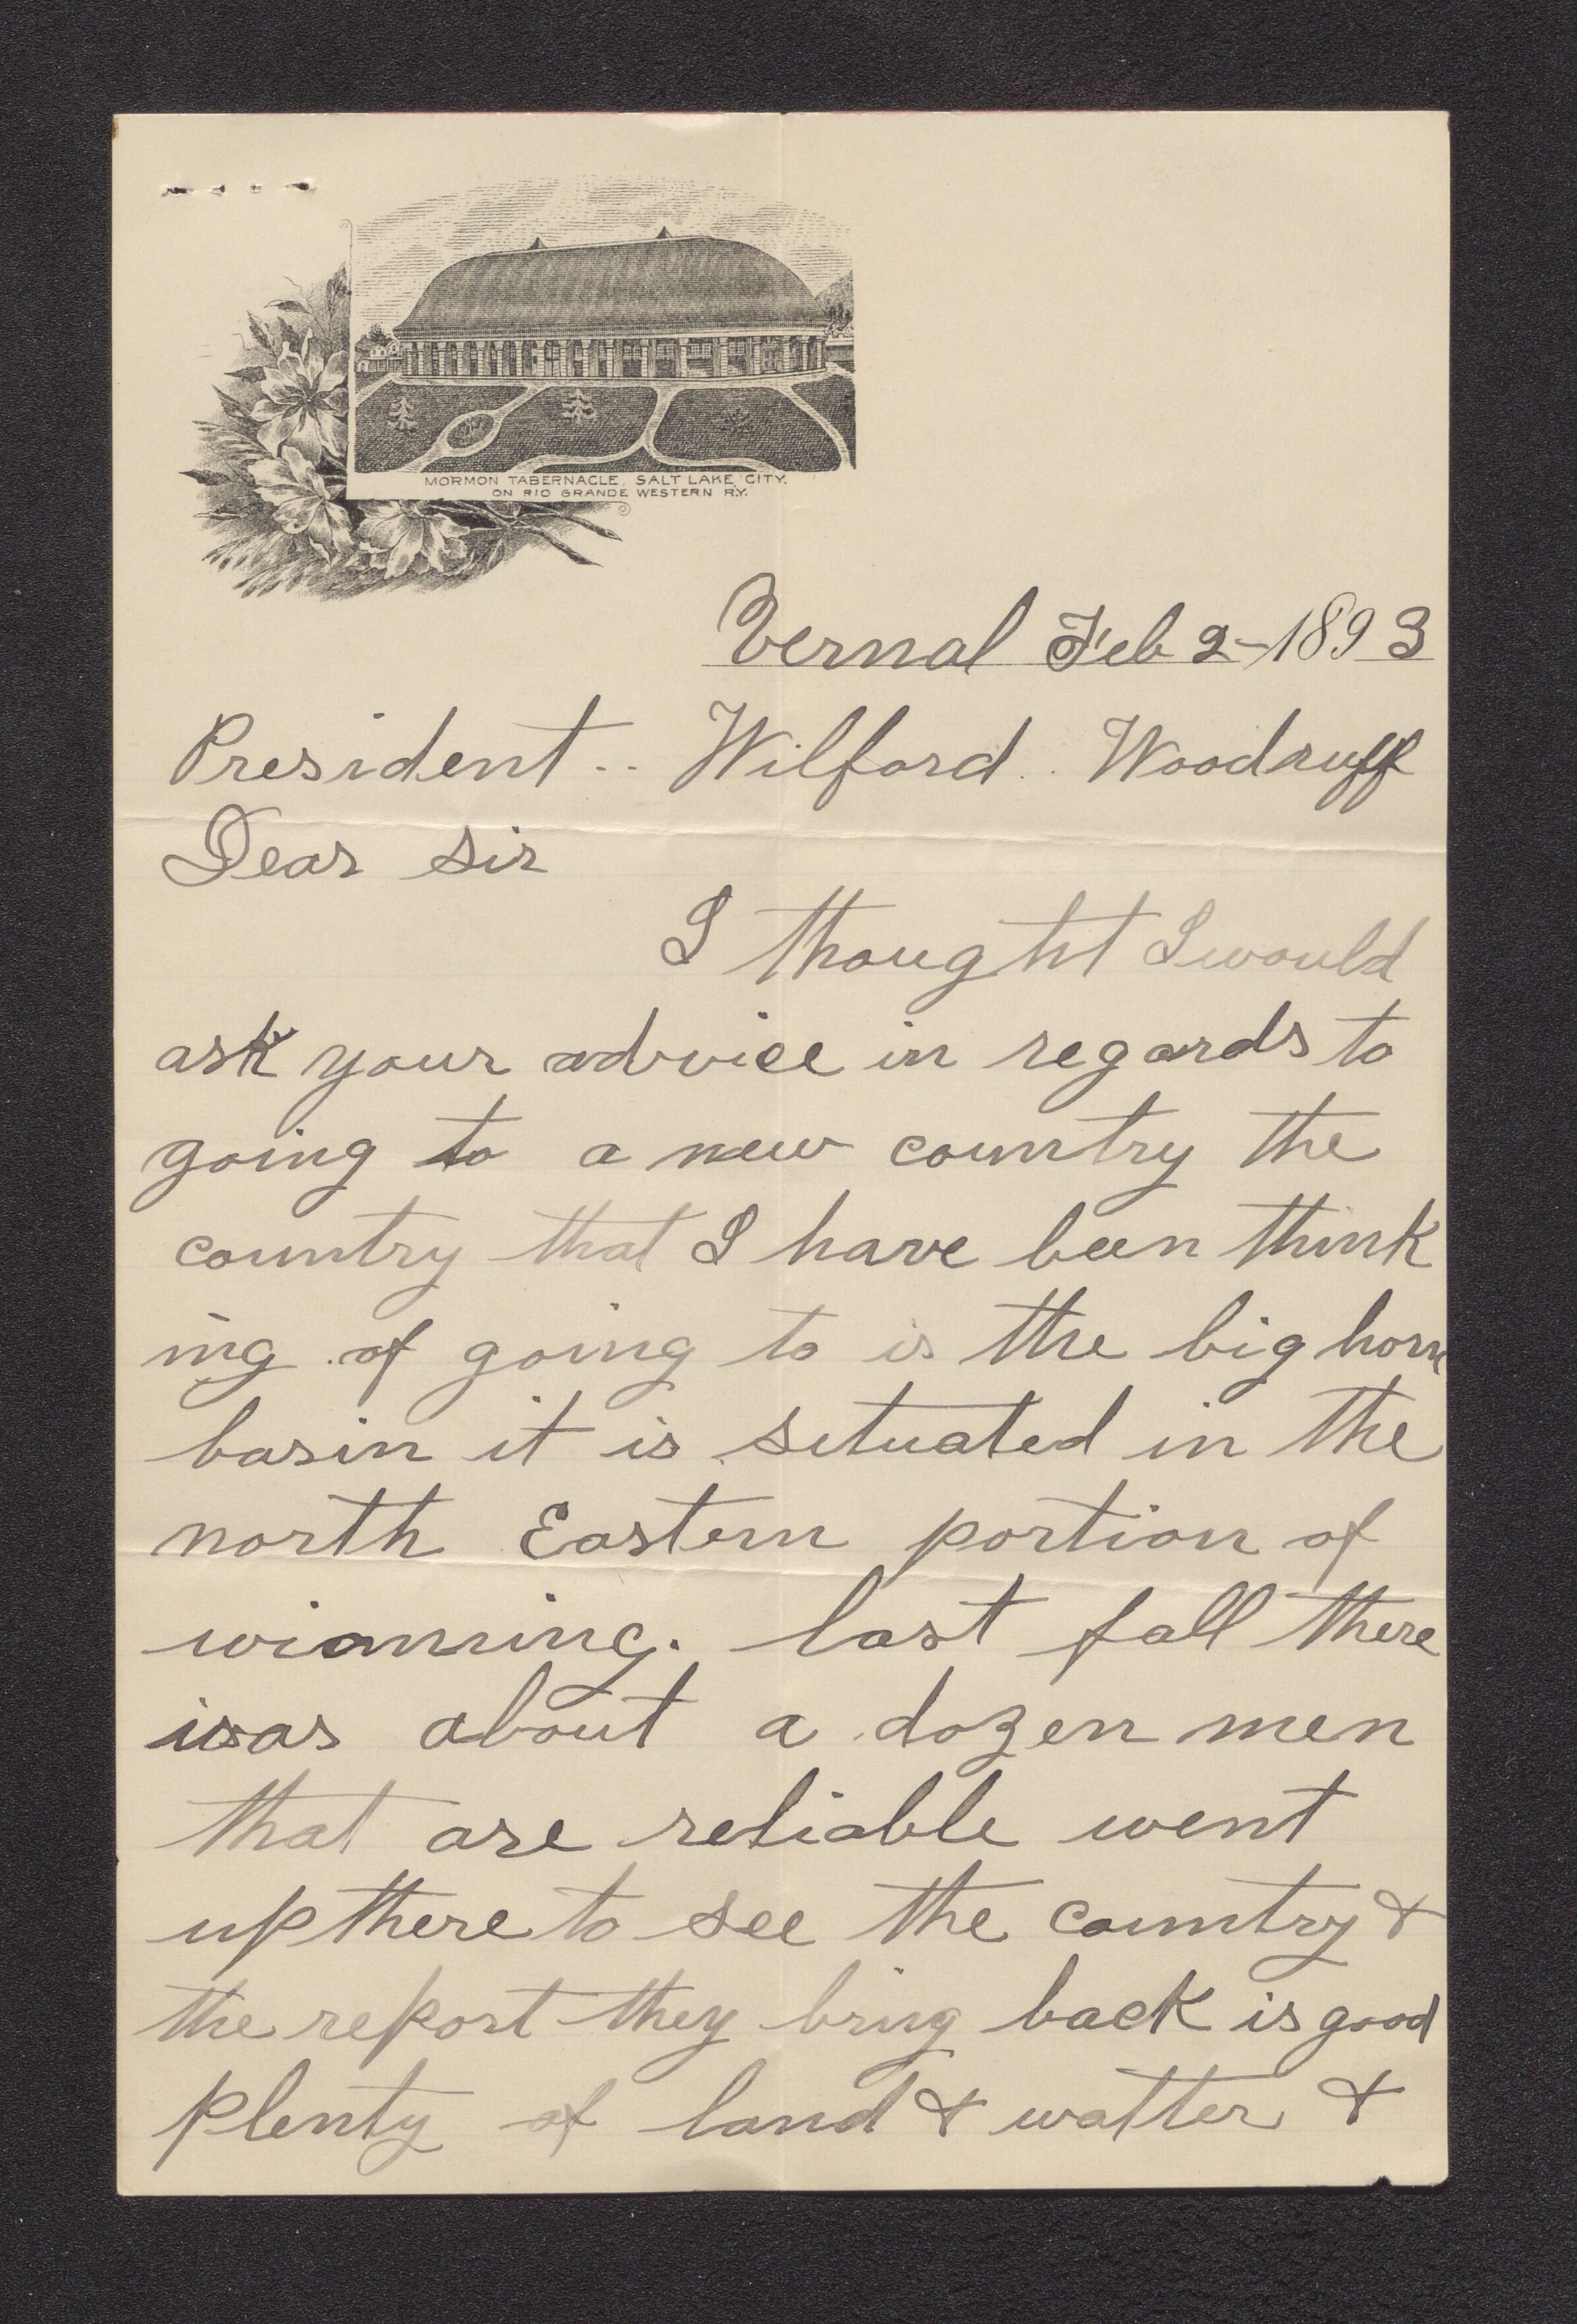 MORMON TABERNACLE, SALT LAKE CITY.
ON RIO GRANDE WESTERN RY.
Vernal Feb 2-1893
President .. Wilford .. Woodruff
Dear sir
I thought I would
ask your advice in regards to
going to a new country the
country that I have been think
ing of going to is the big horn
basin it is situated in the
north Eastern portion of
wioming. last fall there
was about a dozen men
that are reliable went
up there to see the country &
the report they bring back is good
plenty of land & watter &